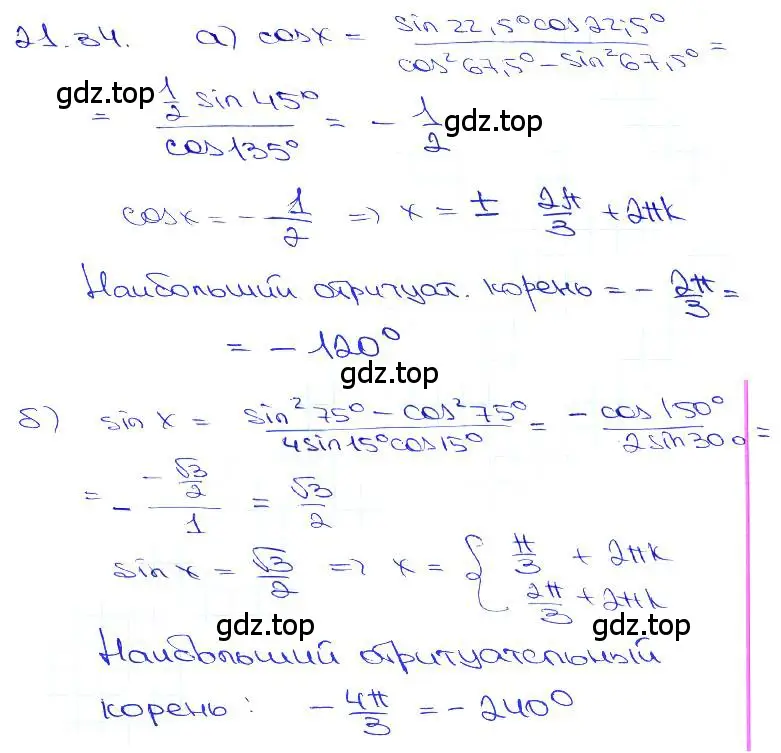 21.34. а) cosx = sin22,5°cos22,5° / cos²67,5° − sin²67,5° =
gdz.top
= ½ sin45° / cos135° = − 1/2
gdz.top
cosx = − 1/2 => x = ± 2π/3 + 2πk
Наибольший отрицат. корень = − 2π/3 =
= − 120°
gdz.top
б) sin x = sin²75° − cos²75° / 4sin15°cos15° = − cos150° / 2sin30° =
= − −√3/2 / 1 = √3/2
sin x = √3/2 => x = { π/3 + 2πk
2π/3 + 2πk
gdz.top gdz.top
Наибольший отрицательный
корень: − 4π/3 = − 240°